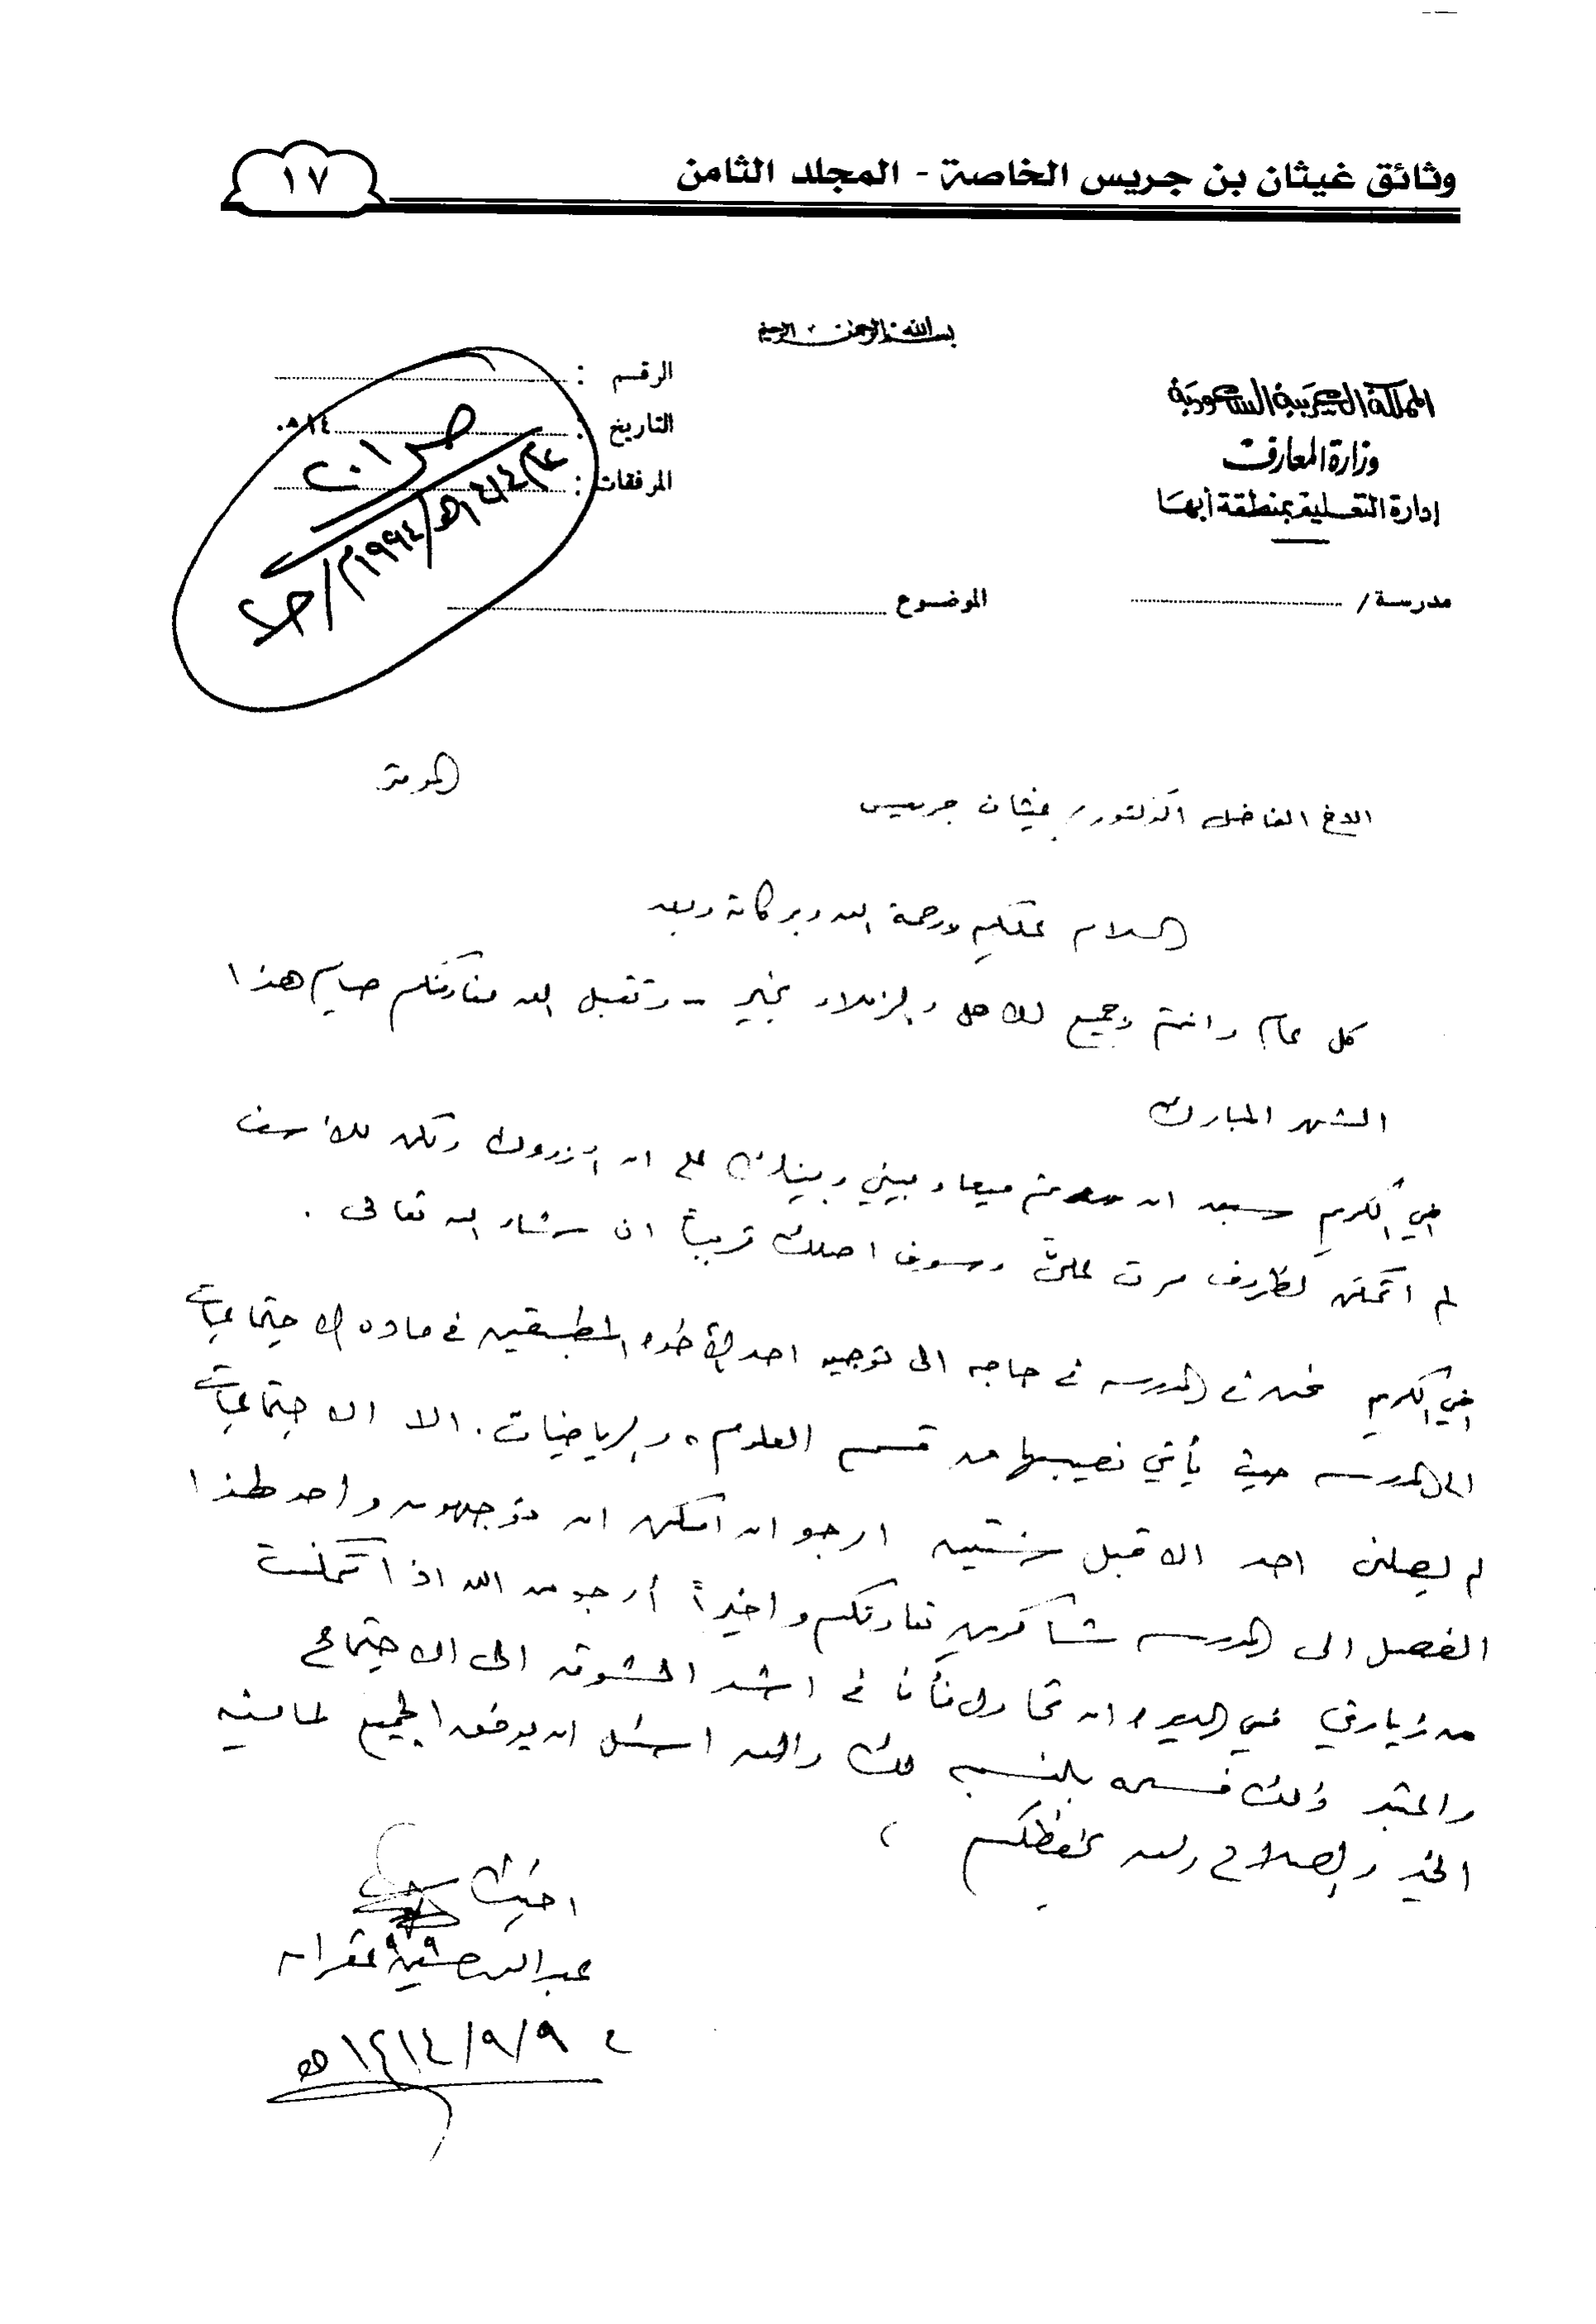 وثائق غيثان بن جريس الخاصة - المجلد الثامن
١٧
بسم الله الرحمن الرحيم
المملكة العربية السعودية
وزارة المعارف
إدارة التعليم بمنطقة أبها
مدرسة /
الرقم :
التاريخ : ١٤٠هـ
المرفقات :
الموضوع
١٤١٤هـ/١٩٩٤م
الاخ الفاضل الدكتور / غيثان جريس
الموقر
السلام عليكم ورحمة الله وبركاته وبعد
كل عام وانتم وجميع الاهل والزملاء بخير - وتقبل الله منا ومنكم صيام هذا
الشهر المبارك
اخي الكريم سبق ان تم ميعاد بيني وبينك على ان ازورك ولكن للأسف
لم اتمكن لظروف مرت علي وسوف اصلك قريباً ان شاء الله تعالى .
اخي الكريم نحن في المدرسه في حاجه الى توجيه احد الأخوه المطبقين في ماده الاجتماعيات
الى المدرسه حيث يأتي نصيبها من قسم العلوم ، والرياضيات . الا الاجتماعيات
لم يصلني احد الا قبل سنتين ارجو ان امكن ان توجهون واحد هذا
الفصل الى المدرسه شاكرين تعاونكم واخيراً أرجو من الله اذا تمكنت
من زيارتي في البيت ان تحاول فأنا في اشد الشوق الى الاجتماع
والله اسئل ان يوفق الجميع لما فيه
الخير والصلاح والله يحفظكم ،
اخوك
عبدالله حسين عقران
١٤١٤/٩/٩ هـ